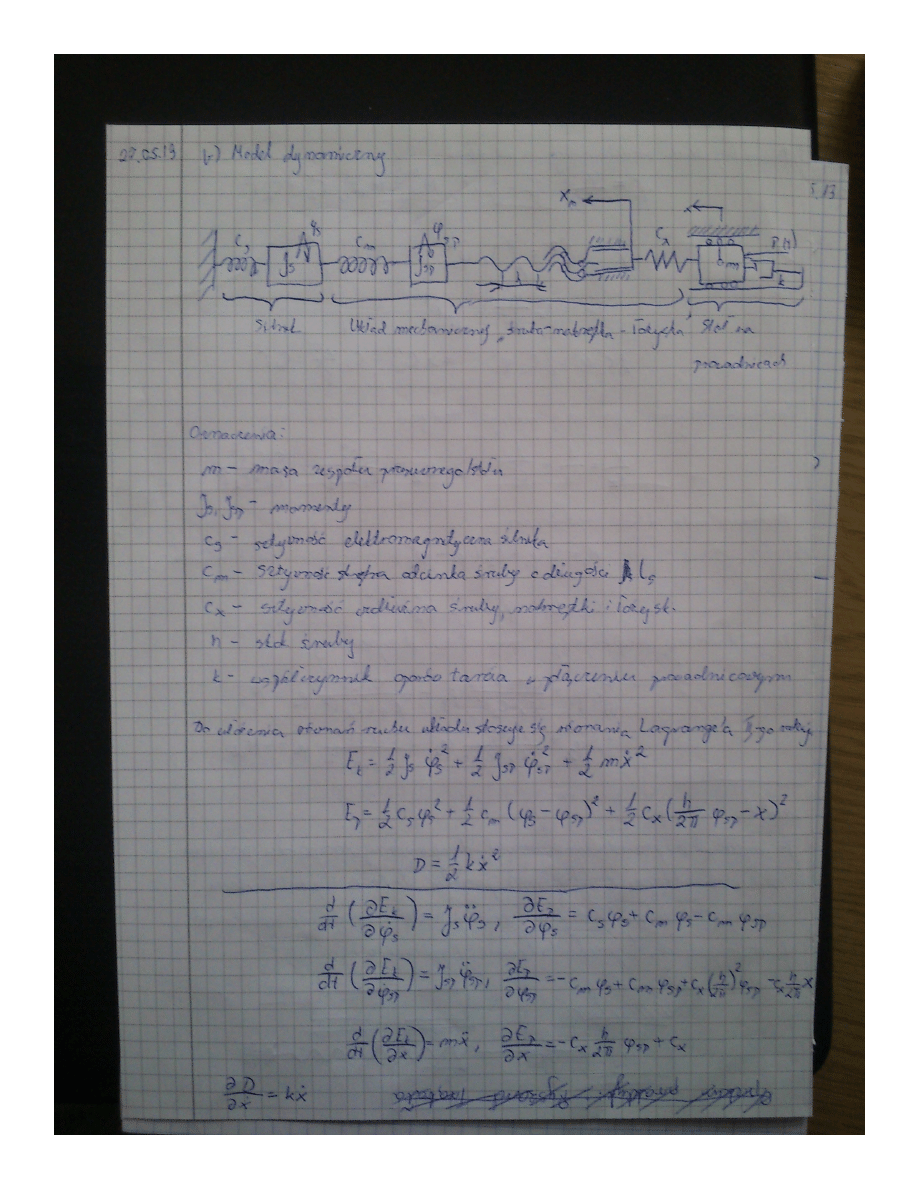 27.05.13 b) Model dynamiczny
5.13
X_m x
C_s φ_s C_m φ_śr C_x F(t)
J_s J_śr m k
h
Silnik Układ mechaniczny „śruba-nakrętka-łożyska” Stół na
prowadnicach
Oznaczenia:
m – masa zespołu przesuwnego/stołu
J_s, J_śr – momenty
C_s – sztywność elektromagnetyczna silnika
C_m – sztywność skrętna odcinka śruby o długości l_s
C_x – sztywność osiowa śruby, nakrętki i łożysk.
h – skok śruby
k – współczynnik oporów tarcia w połączeniu prowadnicowym
Do ułożenia równań ruchu układu stosuje się równania Lagrange'a II-go rodzaju
E_k = 1/2 J_s φ̇_s² + 1/2 J_śr φ̇_śr² + 1/2 mẋ²
E_p = 1/2 C_s φ_s² + 1/2 C_m (φ_s − φ_śr)² + 1/2 C_x (h/2π φ_śr − x)²
D = 1/2 kẋ²
d/dt (∂E_k/∂φ̇_s) = J_s φ̈_s, ∂E_p/∂φ_s = C_s φ_s + C_m φ_s − C_m φ_śr
d/dt (∂E_k/∂φ_śr) = J_śr φ̈_śr, ∂E_p/∂φ_śr = −C_m φ_s + C_m φ_śr + C_x (h/2π)² φ_śr − C_x h/2π x
d/dt (∂E_k/∂x) = mẍ, ∂E_p/∂x = −C_x h/2π φ_śr + C_x
∂D/∂ẋ = kẋ